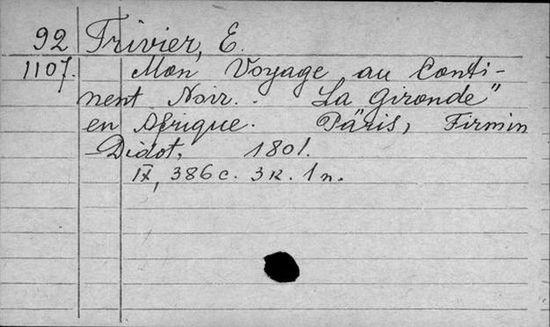 92 Trivier, E.
1107. Mon Voyage au Conti-
nent Noir. . La Gironde"
en Afrique. Päris, Firmin
-Didot, 1801.
IX, 386 c. 3 к. 1 п.